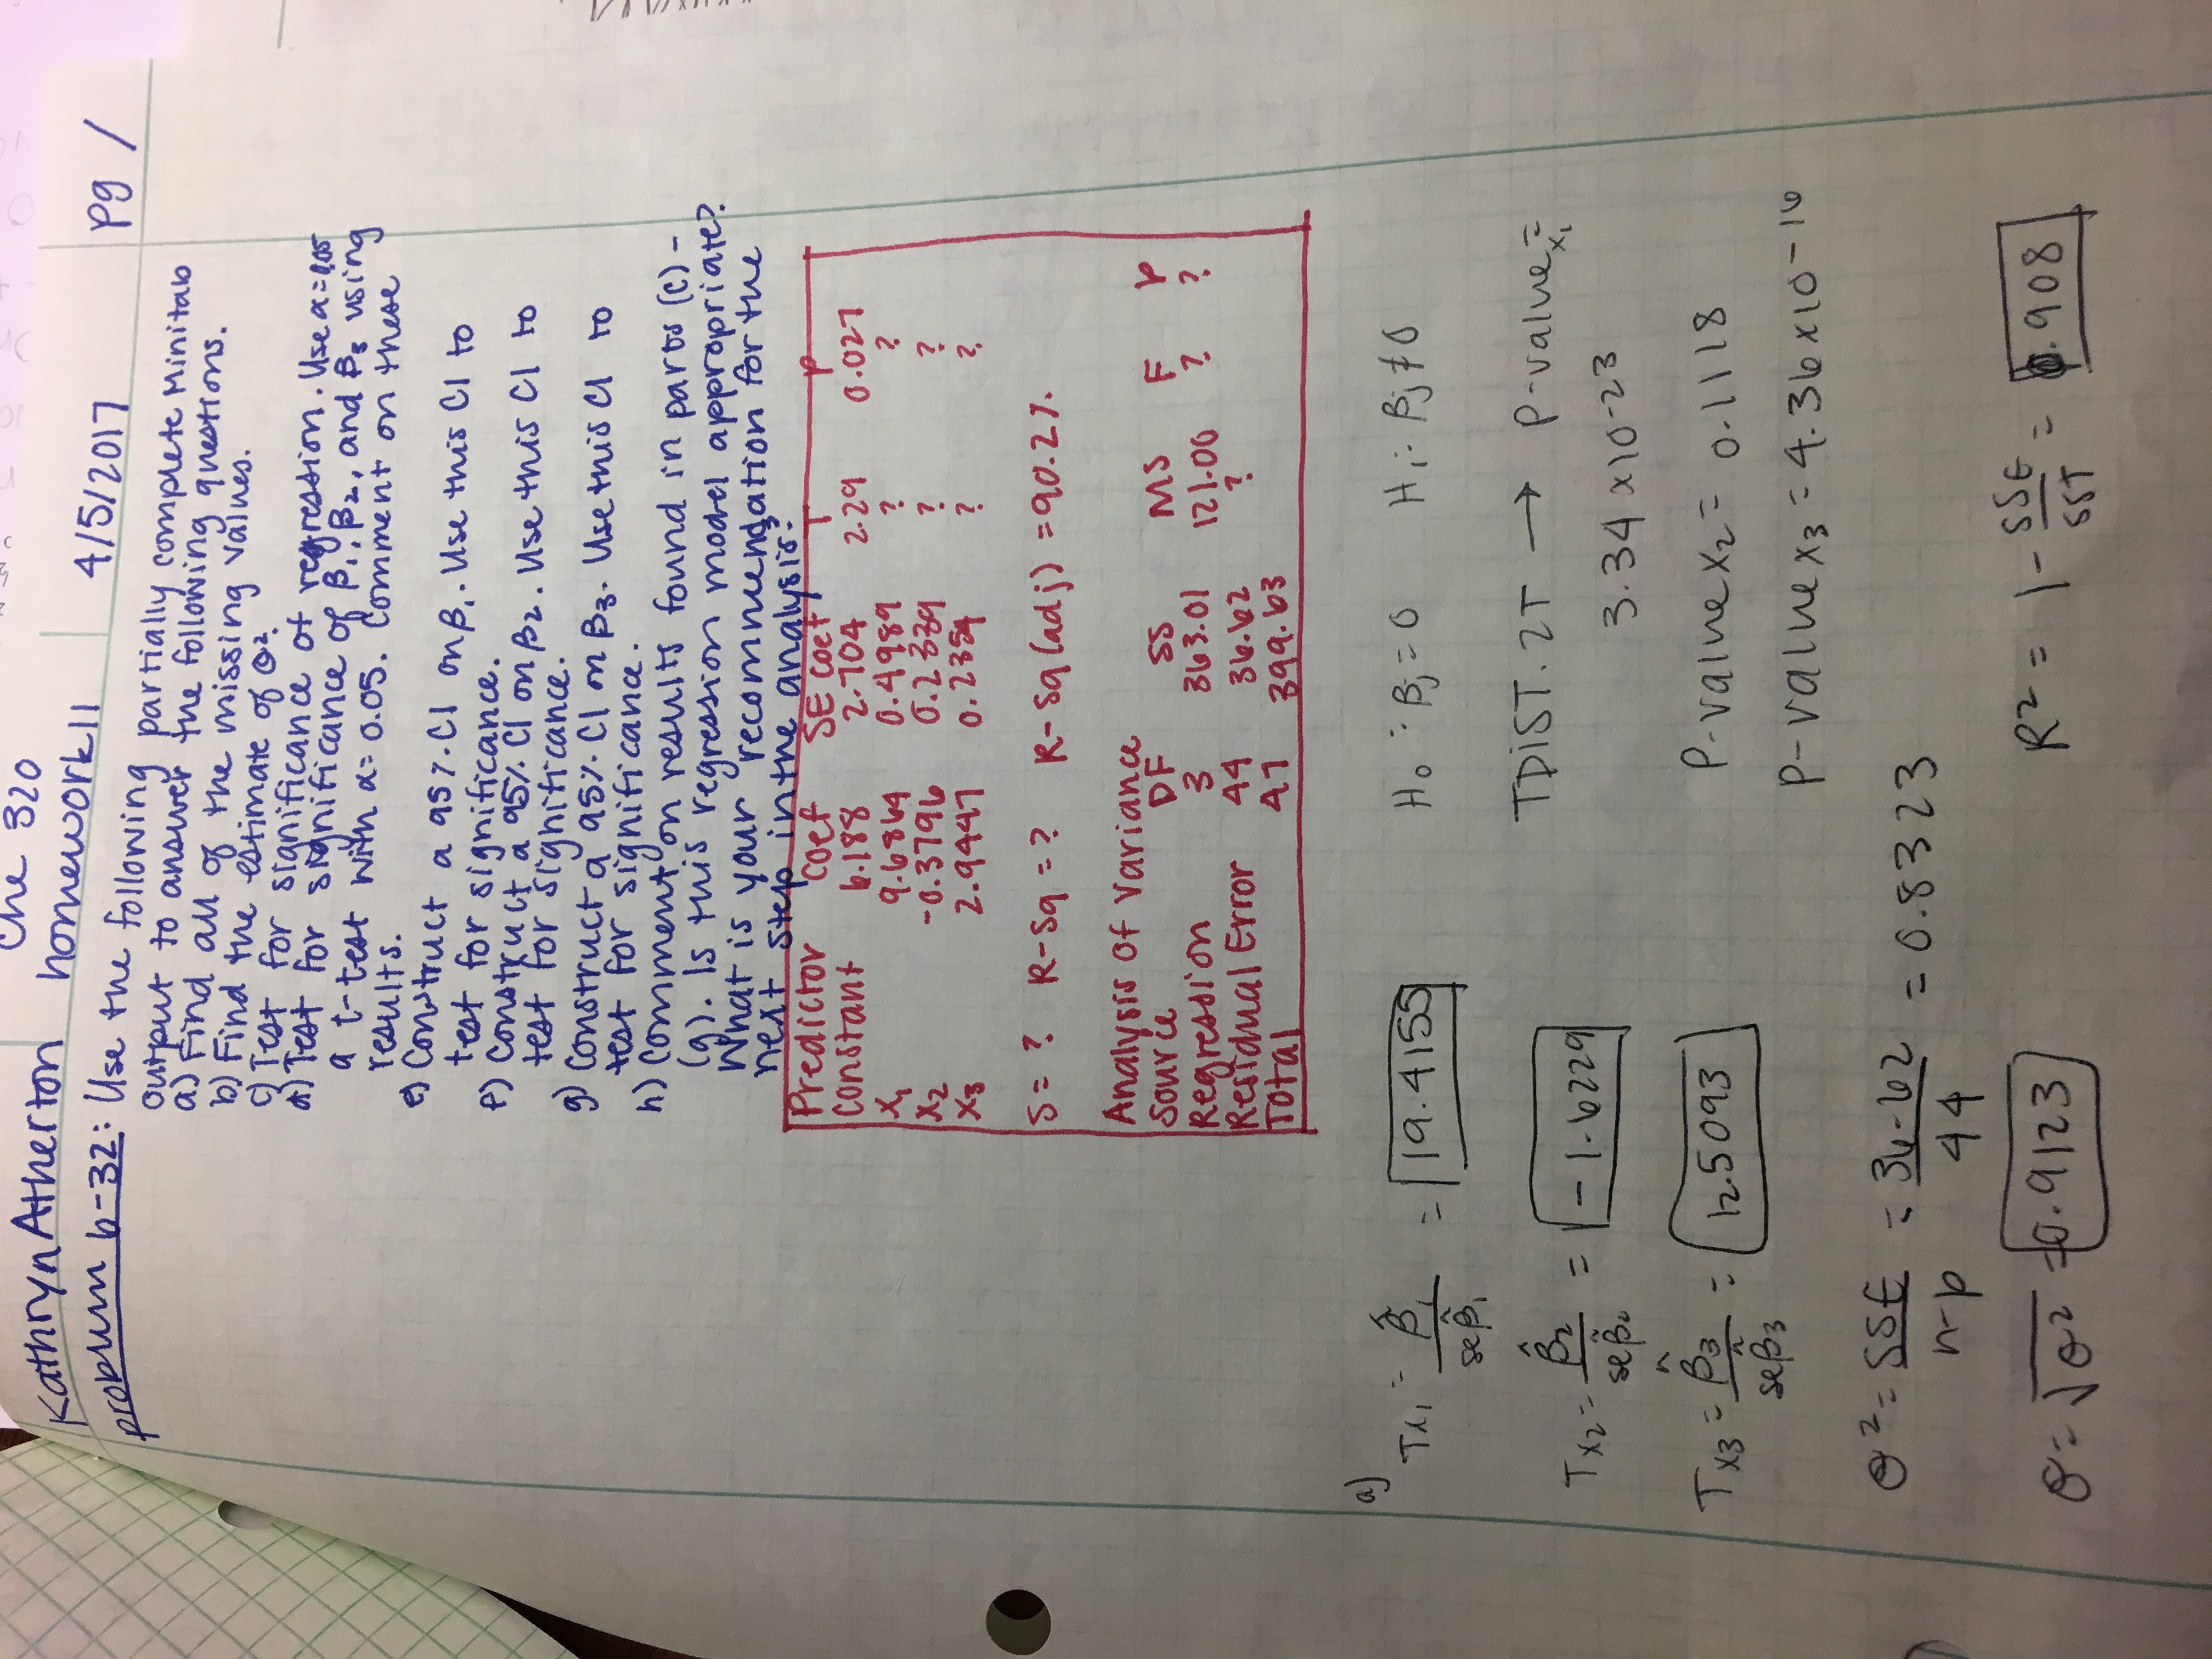 Kathryn Atherton
Che 320
homework 11
4/5/2017
pg 1
problem 6-32: Use the following partially complete Minitab
output to answer the following questions.
a) Find all of the missing values.
b) Find the estimate of σ².
c) Test for significance of regression. Use α = 0.05
d) Test for significance of β₁, β₂, and β₃ using
a t-test with α = 0.05. Comment on these
results.
e) Construct a 95% CI on β₁. Use this CI to
test for significance.
f) Construct a 95% CI on β₂. Use this CI to
test for significance.
g) Construct a 95% CI on β₃. Use this CI to
test for significance.
h) Comment on results found in parts (c) -
(g). Is this regression model appropriate?
What is your recommendation for the
next step in the analysis?
Predictor Coef SE coef T P
Constant 6.188 2.704 2.29 0.027
X₁ 9.6864 0.4989 ? ?
X₂ -0.3796 0.2339 ? ?
X₃ 2.9447 0.2354 ? ?
S = ? R-Sq = ? R-Sq (adj) = 90.2%.
Analysis of Variance
Source DF SS MS F P
Regression 3 363.01 121.00 ? ?
Residual Error 44 36.62 ?
Total 47 399.63
a)
Tx₁ = β̂₁ / seβ̂₁ = 19.4155
H₀: βj = 0 H₁: βj ≠ 0
TDIST.2T → P-value x₁ =
3.34 x10-23
Tx₂ = β̂₂ / seβ̂₂ = -1.6229
Tx₃ = β̂₃ / seβ̂₃ = 12.5093
P-value x₂ = 0.1118
P-value x₃ = 4.36 x10-16
σ² = SSE / n-p = 36.62 / 44 = 0.8323
σ = √σ² = 0.9123
R² = 1 - SSE / SST = 0.908